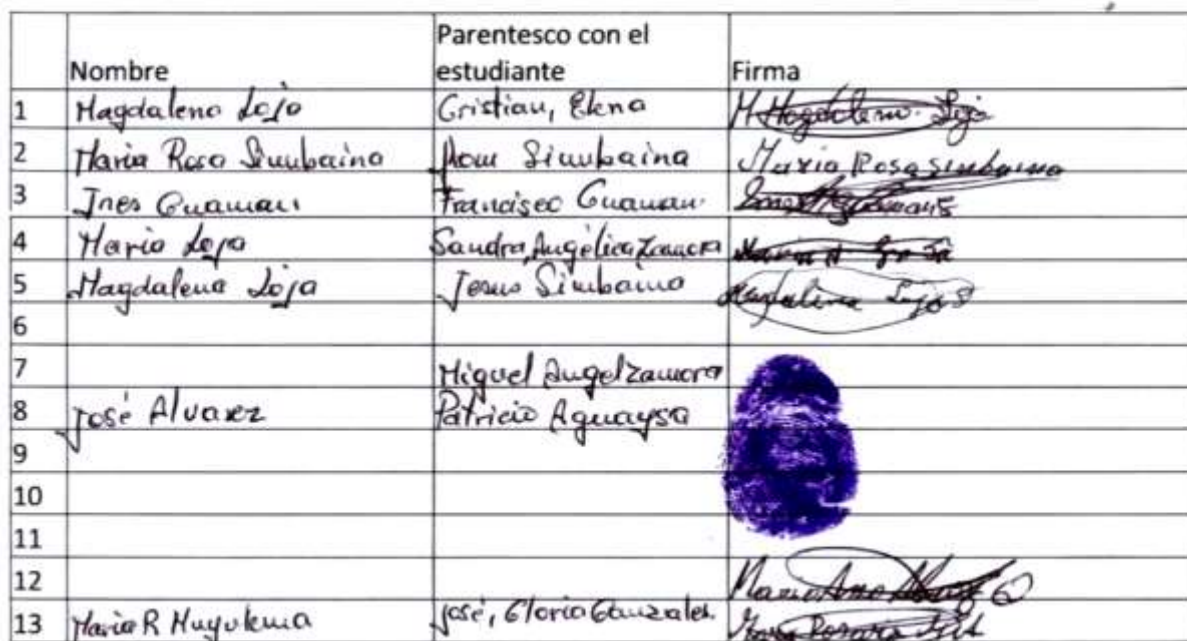 Nombre Parentesco con el estudiante Firma
1 Magdalena Loja Cristian, Elena M Magdalena Loja
2 Maria Rosa Simbaina Simbaina Maria Rosa Simbaina
3 Ines Guaman Francisco Guaman
4 Maria Loja Sandra, Angélica Zamora
5 Magdalena Loja Jesus Simbaina Magdalena Loja S
6
7 Miguel Angel Zamora
8 José Alvarez Patricio Aguaysa
9
10
11
12 Maria
13 Maria R Muyulema José, Gloria Gonzales